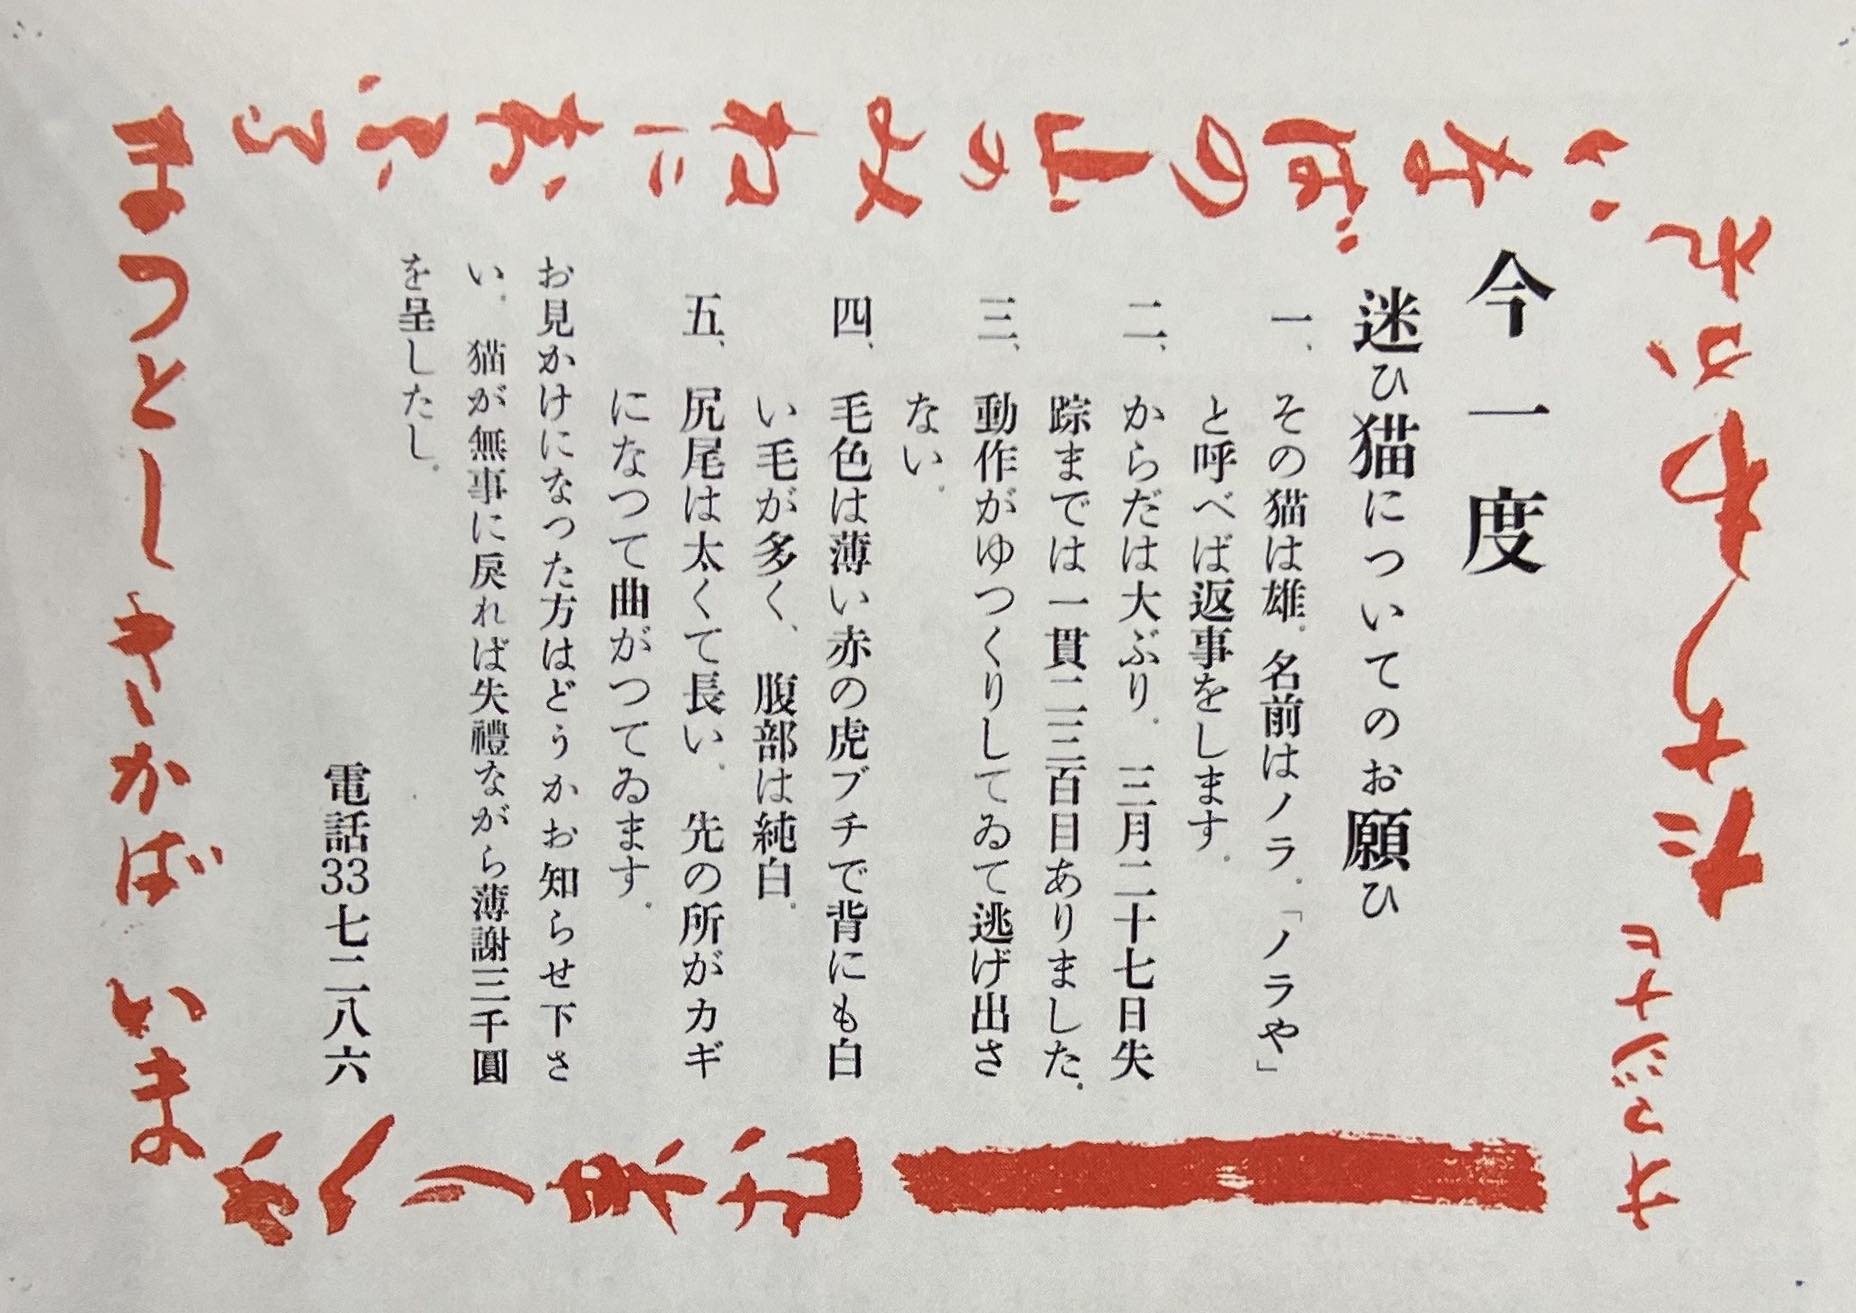 たちわかれ
いなばの山のみねにおふる
まつとしきかば いま
かへり来む
オマジナヒ
今一度
迷ひ猫についてのお願ひ
一、その猫は雄。名前はノラ。「ノラや」
と呼べば返事をします。
二、からだは大ぶり。三月二十七日失
踪までは一貫二三百目ありました。
三、動作がゆつくりしてゐて逃げ出さ
ない。
四、毛色は薄い赤の虎ブチで背にも白
い毛が多く、腹部は純白。
五、尻尾は太くて長い。先の所がカギ
になつて曲がつてゐます。
お見かけになつた方はどうかお知らせ下さ
い。猫が無事に戻れば失禮ながら薄謝三千圓
を呈したし。
電話33七二八六